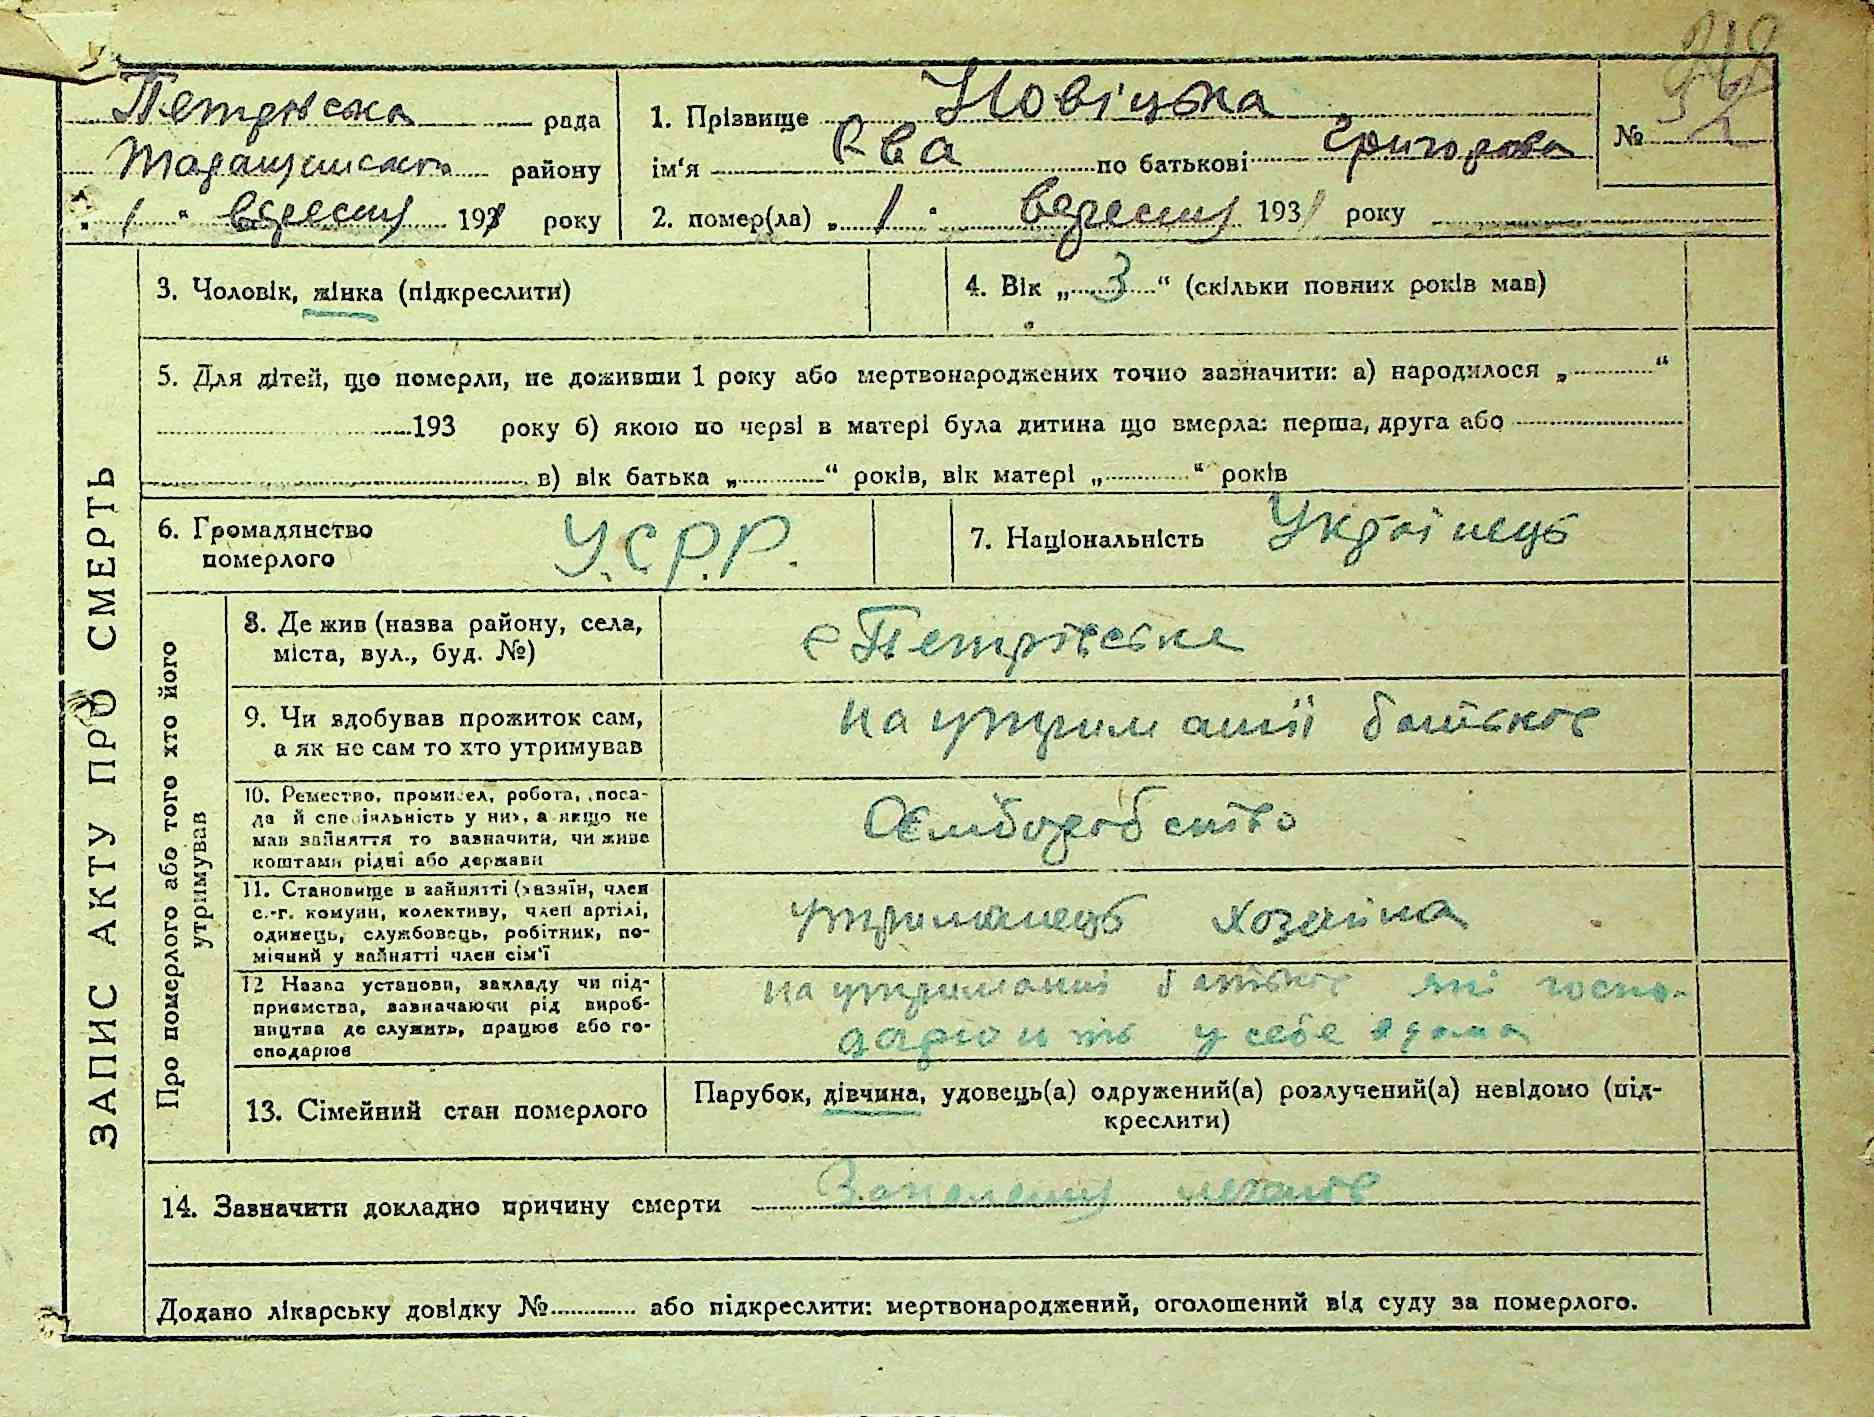 Петрівська рада
району
"1" вересня 1931 року
1. Прізвище Новіцька
ім'я Ева по батькові Григорова
№ 52
2. помер(ла) "1" вересня 1931 року
3. Чоловік, жінка (підкреслити)
4. Вік „3“ (скільки повних років мав)
5. Для дітей, що померли, не доживши 1 року або мертвонароджених точно зазначити: а) народилося „ “
193 року б) якою по черзі в матері була дитина що вмерла: перша, друга або
в) вік батька „ “ років, вік матері „ “ років
6. Громадянство
померлого
У.С.Р.Р.
7. Національність Українець
ЗАПИС АКТУ ПРО СМЕРТЬ
Про померлого або того хто його
утримував
8. Де жив (назва району, села,
міста, вул., буд. №)
с Петрівське
9. Чи здобував прожиток сам,
а як не сам то хто утримував
на утриманії батьків
10. Ремество, промисел, робота, поса-
да й спеціяльність у них, а якщо не
мав зайняття то зазначити, чи живе
коштами рідні або держави
11. Становище в зайнятті (хазяїн, член
с.-г. комуни, колективу, член артілі,
одинець, службовець, робітник, по-
мічний у зайнятті член сім'ї
утриманець хозяіна
12 Назва установи, закладу чи під-
приємства, зазначаючи рід вироб-
ництва де служить, працює або го-
сподарює
на утриманні батьків які госпо-
дарюють у себе вдома
13. Сімейний стан померлого
Парубок, дівчина, удовець(а) одружений(а) розлучений(а) невідомо (під-
креслити)
14. Зазначити докладно причину смерти Запалення легенів
Додано лікарську довідку № або підкреслити: мертвонароджений, оголошений від суду за померлого.